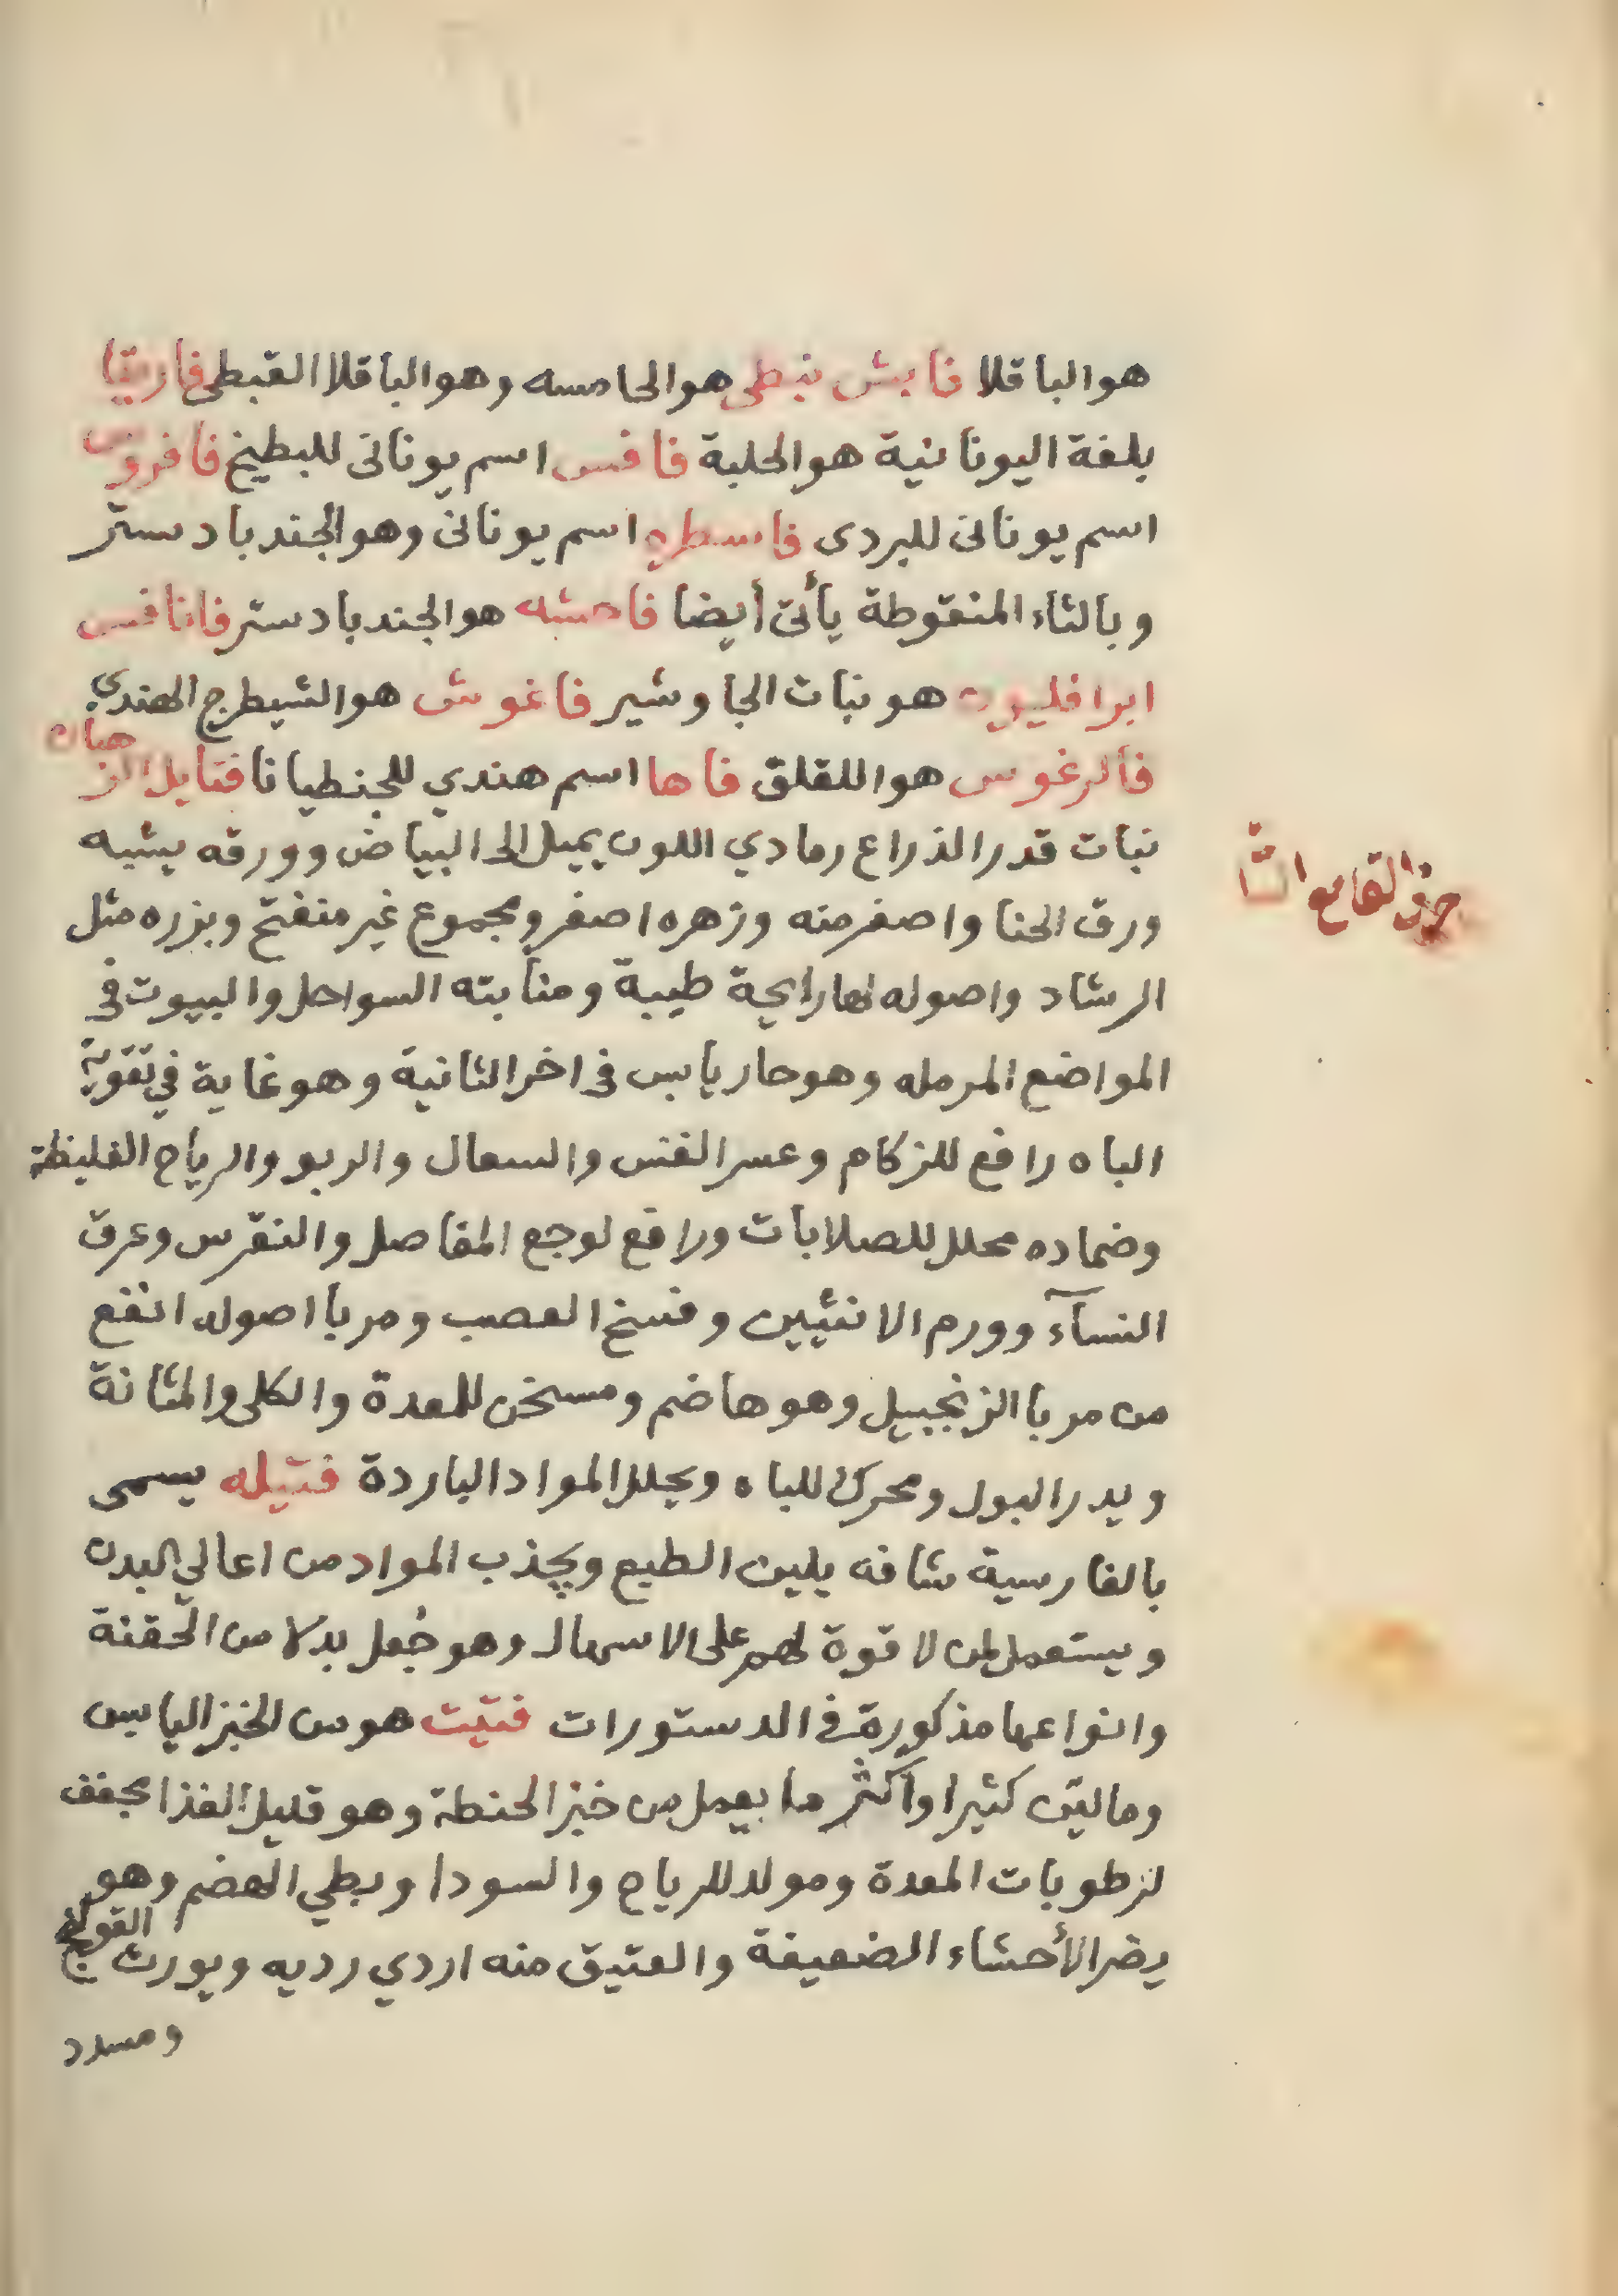 هو الباقلا فابش نبطى هو الحامسه وهو الباقلا القبطى فاريقا
بلغة اليونانية هو الحلبة فافس اسم يونانى للبطيخ فافروس
اسم يونانى للبردى فاسطره اسم يونانى وهو الجندبادستر
وبالثاء المنقوطة يأتى أيضا فاحشه هو الجندبادستر فانافس
ابرافليون هو نبات الجاوشير فاغوش هو الشيطرج الهندي
فالرغوس هو اللقلق فاها اسم هندي للجنطيانا فتايل الرهبان
نبات قدر الذراع رمادي اللون يميل الى البياض وورقه يشبه
ورق الحنا واصغر منه وزهره اصفر ومجموع غير منفتح وبزره مثل
الرشاد واصوله لها رايحة طيبة ومنابته السواحل والبيوت فى
المواضع المرمله وهو حار يابس فى اخر الثانية وهو غاية في تقوية
الباه رافع للزكام وعسر النفس والسعال والربو والرياح الغليظة
وضماده محلل للصلابات ورافع لوجع المفاصل والنقرس وعرق
النسآء وورم الانثيين وفسخ العصب ومربا اصوله انفع
من مربا الزنجبيل وهو هاضم ومسخن للمعدة والكلى والمثانة
ويدر البول ومحرك للباه ويحلل المواد الباردة فتيله يسمى
بالفارسية شافه يلين الطبع ويجذب المواد من اعالي البدن
ويستعمل لمن لا قوة لهم على الاسهال وهو جُعل بدلا من الحقنة
وانواعها مذكورة في الدستورات فتيت هو من الخبز اليابس
وماليّن كثيرا وأكثر ما يعمل من خبز الحنطة وهو قليل الغذا مجفف
لرطوبات المعدة ومولد للرياح والسودا وبطي الهضم وهو
يضر الأحشاء الضعيفة والعتيق منه اردي رديه ويورث القولنج
ومسدد
حرف الفا مع التّا